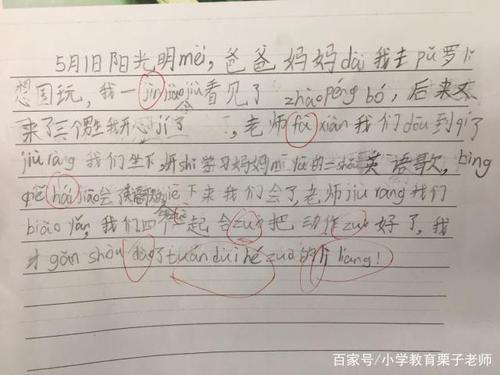 5月1日阳光明mèi,爸爸妈妈dài我去pǔ罗li
想国玩,我一jìn jiào jiù看见了zhào péng bó,后来又
来了三个男生我开心jí了,老师fā xiàn我们dōu到qí了
jiù ràng我们坐下,开shǐ学习妈妈mī yā的一shǒu英语歌,bìng
qiě hái jiāo会 jiē下来我们会了,老师jiù ràng我们
biǎo yǎn,我们四个一起合zuò把动作zuò好了,我
才gǎn shòu dào了tuán duì hé zuò的力liàng!
百家号/小学教育栗子老师